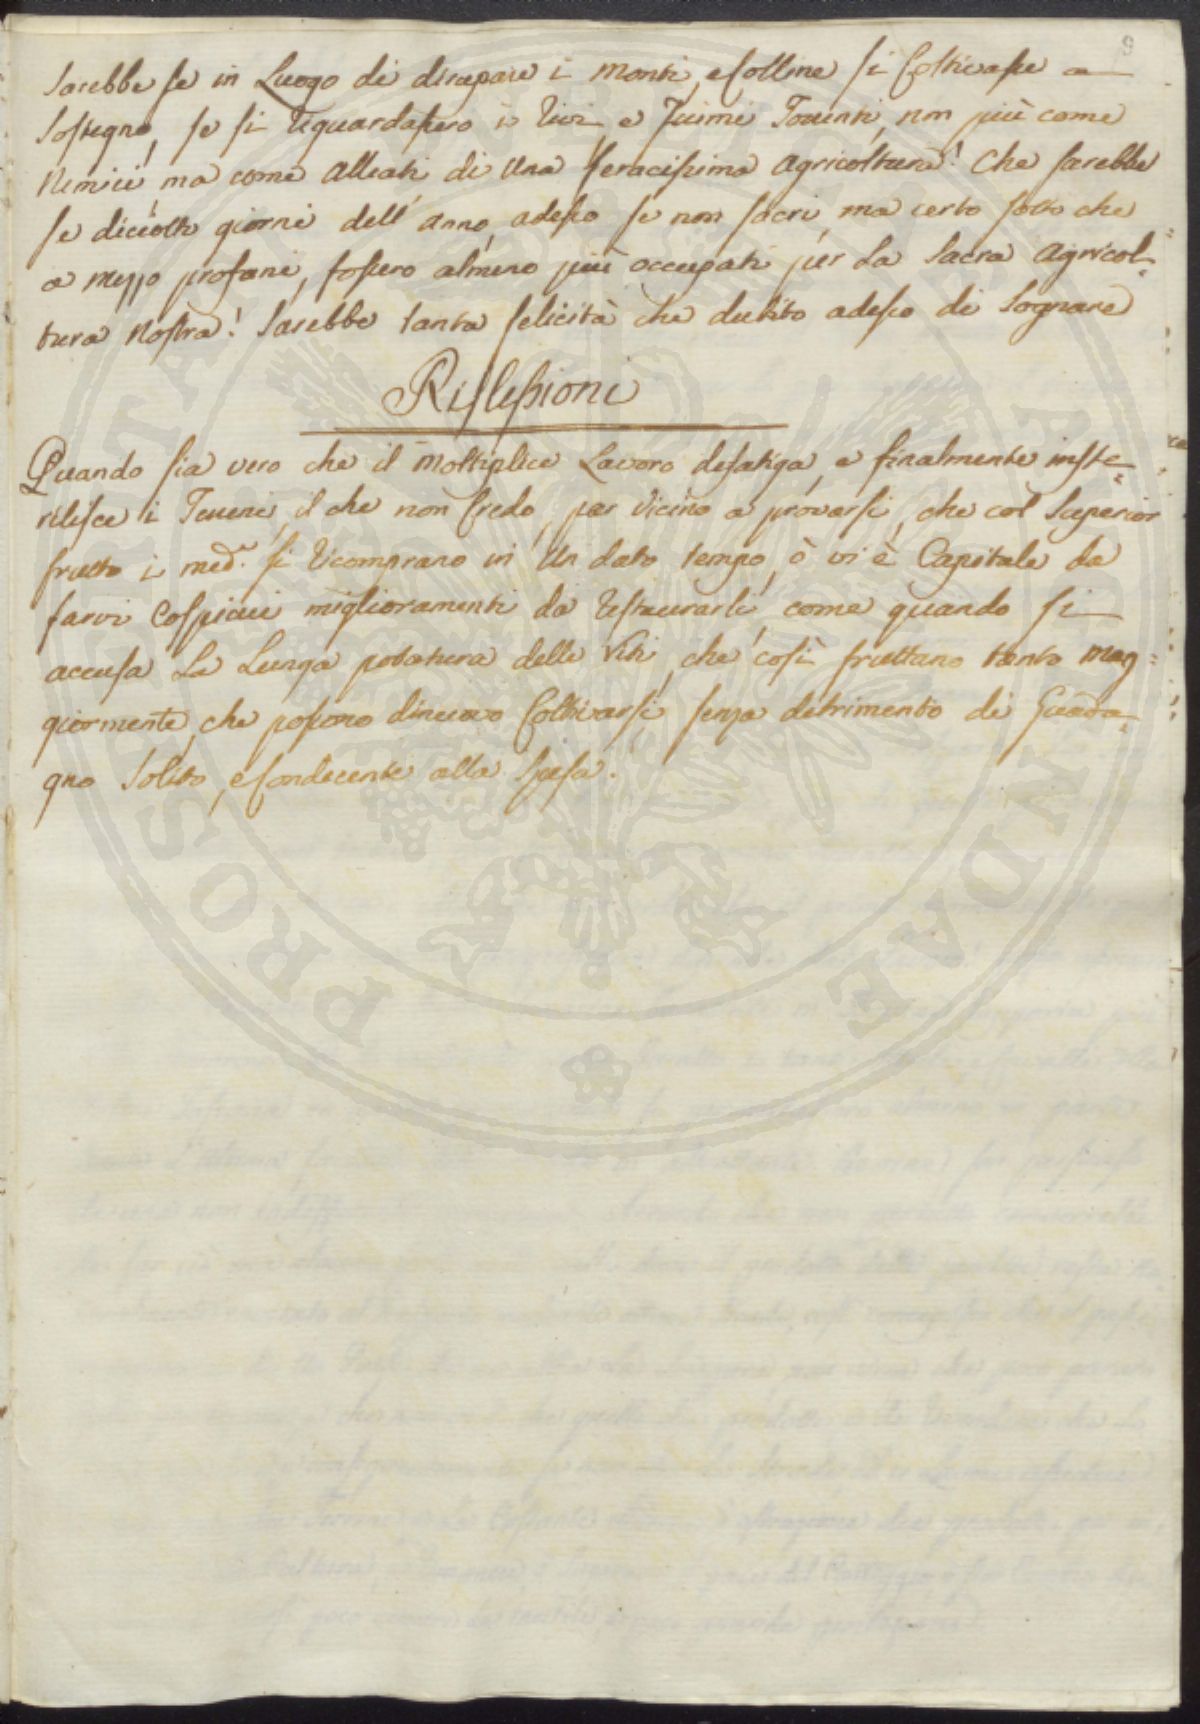 9
sarebbe se in Luogo di dirupare i Monti, e Colline si Coltivasse a
sostegno, se si riguardassero i Rivi e Fiumi Torrenti, non più come
Nemici, ma come Alleati di Una feracissima Agricoltura! Che sarebbe
se diciotto giorni dell'Anno, adesso se non sacri, ma certo sotto che
a mezzo profani, fossero almeno più occupati per La Sacra Agricol=
tura Nostra! Sarebbe tanta felicità che dubito adesso di Sognare
Riflessioni
Quando sia vero che il Moltiplice Lavoro desatiga, e finalmente inste=
rilisce i Terreni, il che non Credo, par Vicino a provarsi, che col Superior
frutto i med.i si ricomprano in Un dato tempo, ò vi è Capitale da
farvi Cospicui miglioramenti da restaurarli, come quando si
accusa La Lunga potatura delle Viti, che così fruttano tanto mag=
giormente, che possono dinuovo Coltivarsi, senza detrimento di Guada=
gno Solito, e Condecente alla Spesa.
PROSPERITATI PUBLICAE AUGENDAE